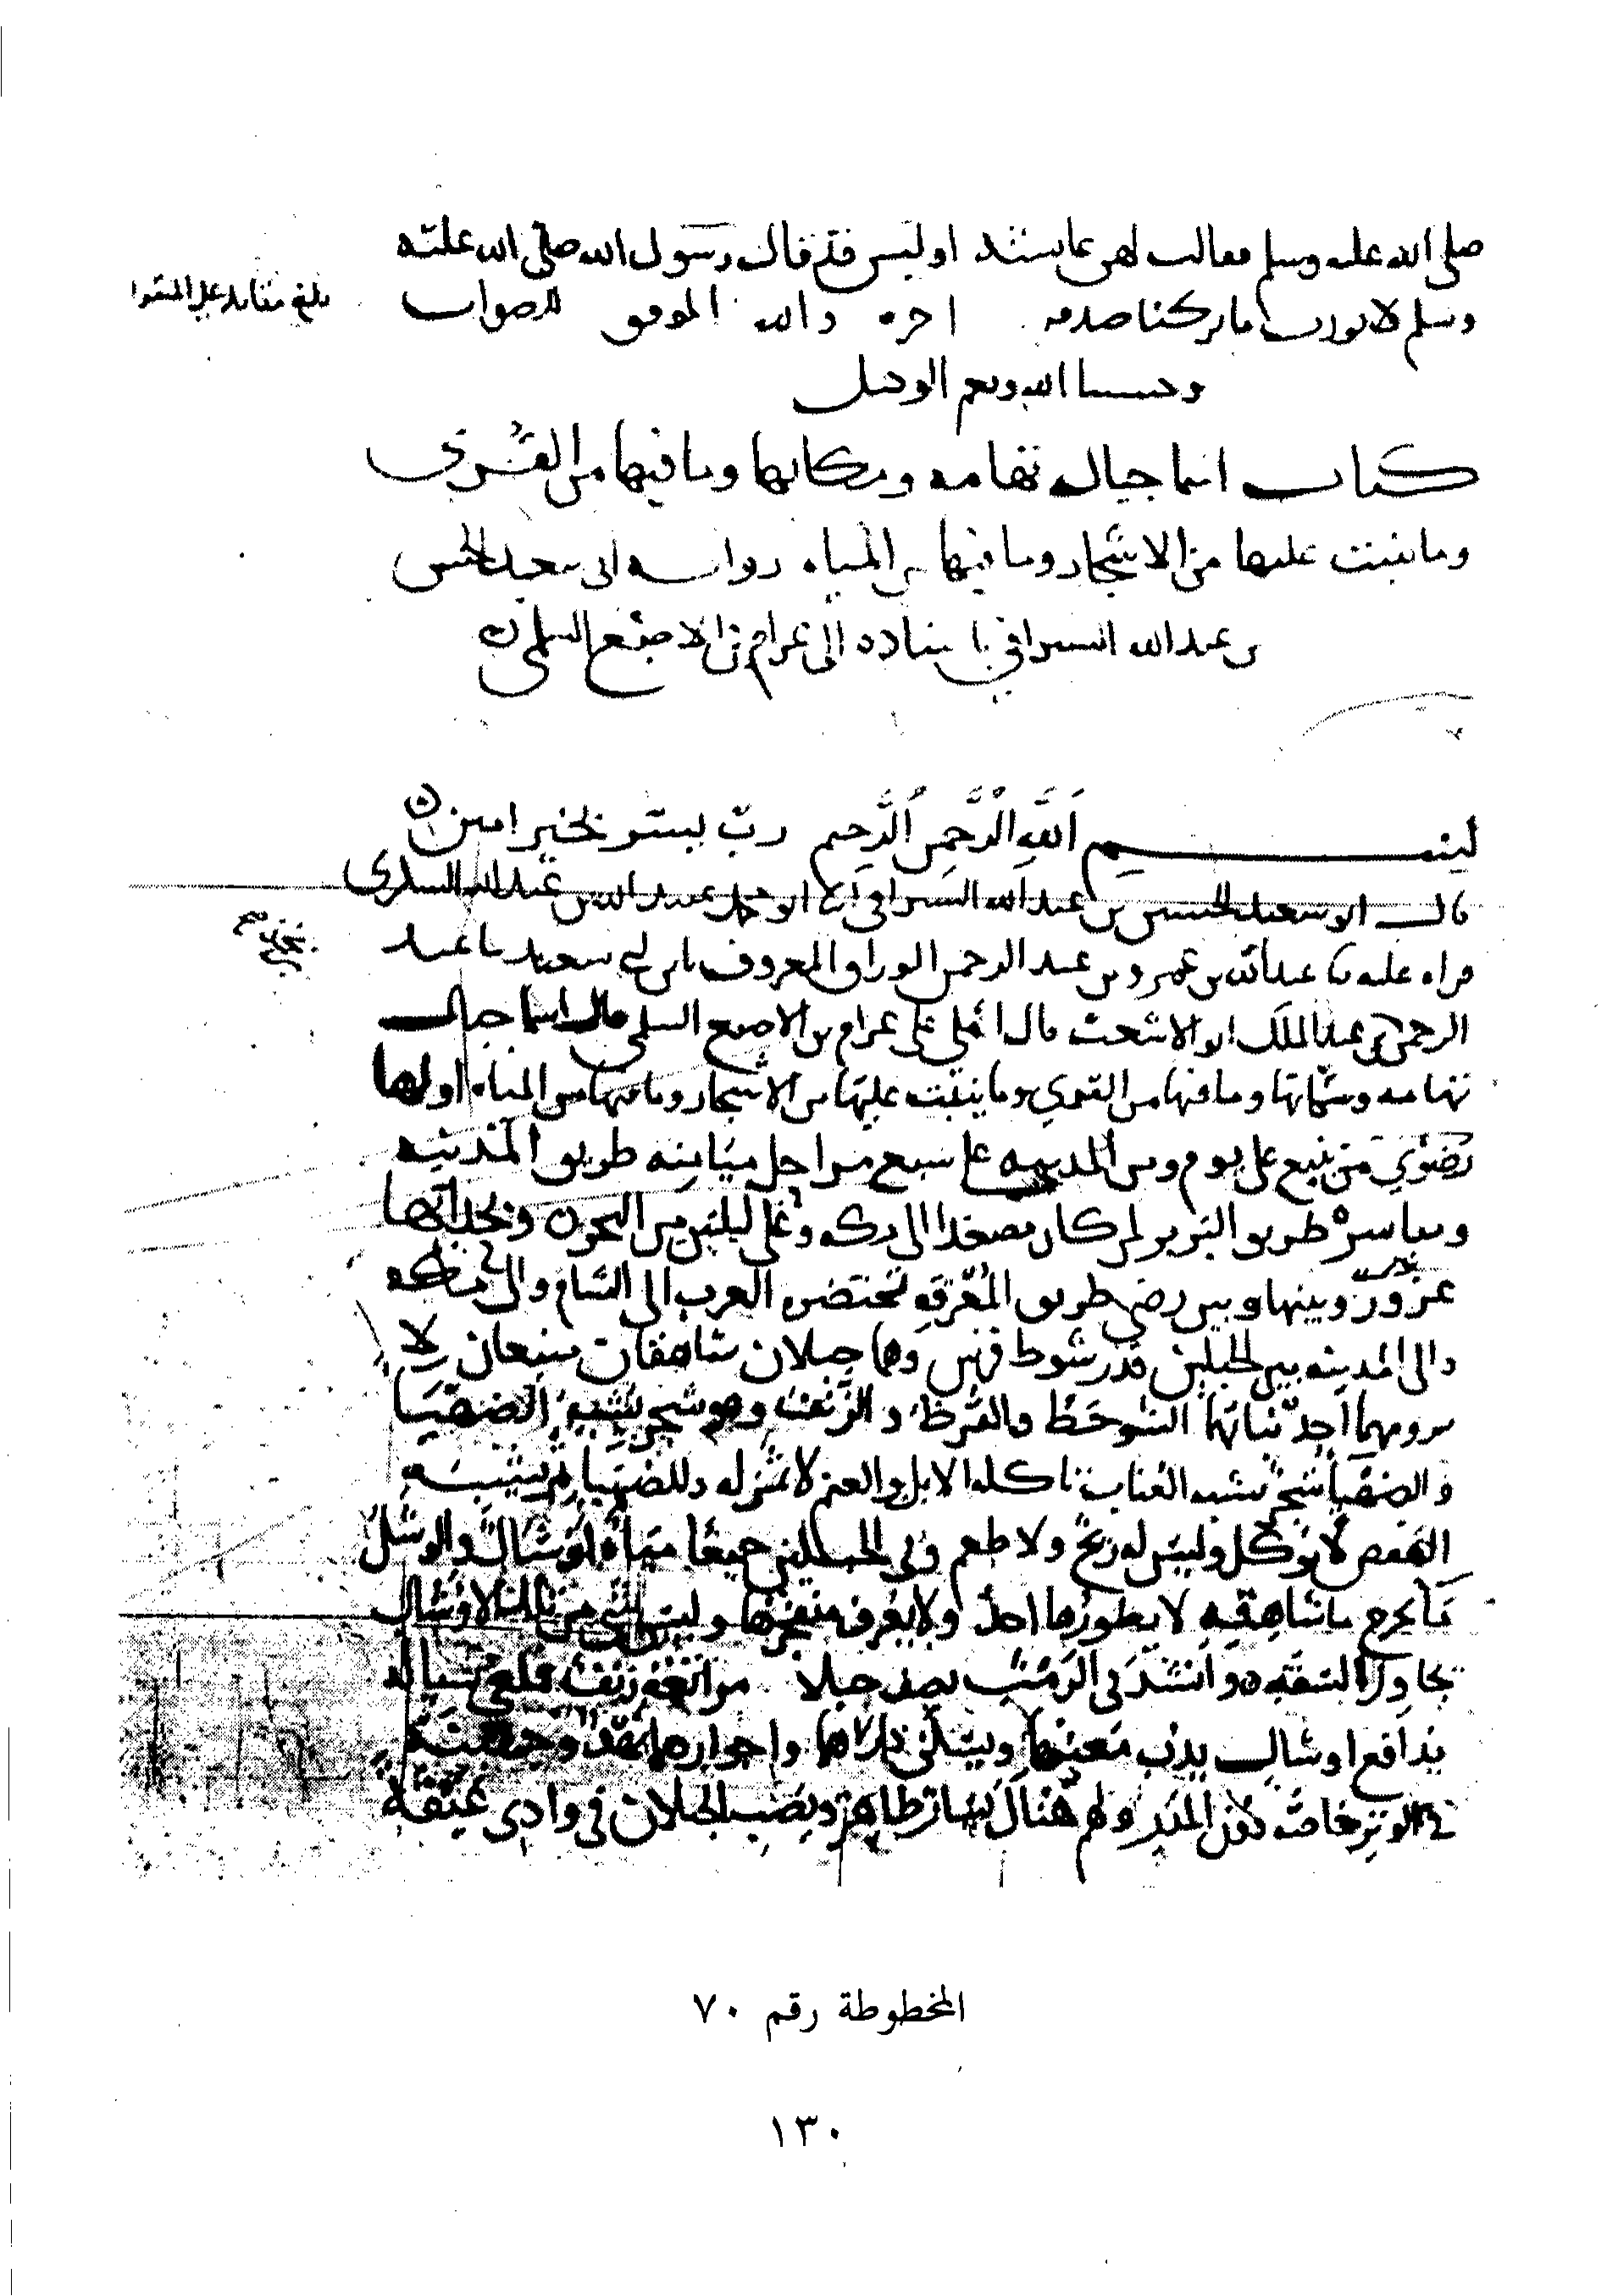 صلى الله عليه وسلم فقالت لهن عائشة اوليس قد قال رسول الله صلى الله عليه
وسلم لا نورث ما تركنا صدقه اخره والله الموفق للصواب
بلغ مقابله على
وحسبنا الله ونعم الوكيل
كتاب اسما جبال تهامه ومكانها وما فيها من القرى
وما ينبت عليها من الاشجار وما فيها من المياه روايه ابي سعيد الحسن
بن عبد الله السيرافي باسناده الى عرام بن الاصبغ السلمي
بسم الله الرحمن الرحيم رب يسر بخير امين
قال ابو سعيد الحسن بن عبد الله السيرافي انا ابو محمد عبيد الله بن عبد الله السكري
قراه عليه نا عبد الله بن عمرو بن عبد الرحمن الوراق المعروف بابن ابي سعيد نا عبد
الرحمن بن عبد الملك ابو الاشعث قال املى علي عرام بن الاصبغ السلمي قال اسما جبال
تهامه وسكانها وما فيها من القرى وما ينبت عليها من الاشجار وما فيها من المياه اولها
رضوى من ينبع على يوم ومن المدينه على سبع مراحل ميامنه طريق المدينه
ومياسره طريق البريرا لمن كان مصعدا الى مكه وعلى ليلتين من البحر وبحذائها
عزور وبينها وبين رضوى طريق المعرقه تختصره العرب الى الشام والى مكه
والى المدينه بين الجبلين قدر شوط فرس وهما جبلان شاهقان منيعان لا
يرومهما احد نباتهما الشوحط والقرظ والرنف وهو شجر يشبه الضهيا
والضهيا شجر يشبه العناب تاكله الابل والغنم لا ثمر له وللضهيا ثمر يشبه
العفص لا يوكل وليس له ريح ولا طعم وفي الجبلين جميعا مياه اوشال والوشل
ما يخرج من شاهقه لا يطورها احد ولا يعرف منفجرها وليس شي من تلك الاوشال
يجاوز الشقه وانشد في الرنف يصف جبلا مراتعه رنف فملقى سياله
مدافع اوشال يدب معينها ويسكن ذراهما واحوازهما نهد وجهينه
في الوبر خاصه دون المدر ولهم هناك يسار ظاهر ويصب الجبلان في وادي غيقه
المخطوطة رقم ٧٠
١٣٠